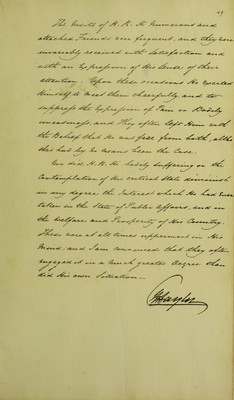 49
The Visits of H. R. H. numerous and
attached Friends were frequent, and they were
invariably received with Satisfaction and
with an Expression of His Sense of their
attention. Upon these occasions He exerted
Himself to meet them chearfully, and to
suppress the Expression of Pain or Bodily
uneasiness, and They often left Him with
the Belief that He was free from both, altho
this had by no means been the Case.
Nor did H. R. H. bodily suffering or the
Contemplation of His critical State diminish
in any degree the Interest which He had ever
taken in the State of Public Affairs, and in
the Welfare and Prosperity of His Country.
These were at all times uppermost in His
Mind, and I am convinced that they often
engaged it in a much greater degree than
did His own Situation.
H Taylor